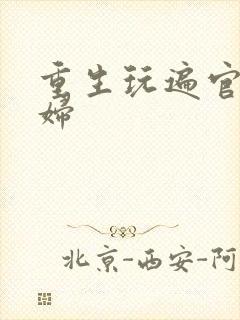 重生玩遍官
婦
北京-西安-阿